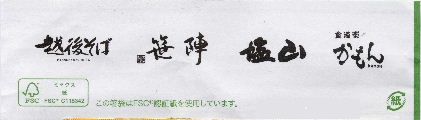 越後そば
笹陣
塩山
食道楽
かもん
KAMON
ミックス
紙
FSC
FSC® C118342
この箸袋はFSC®認証紙を使用しています。
紙